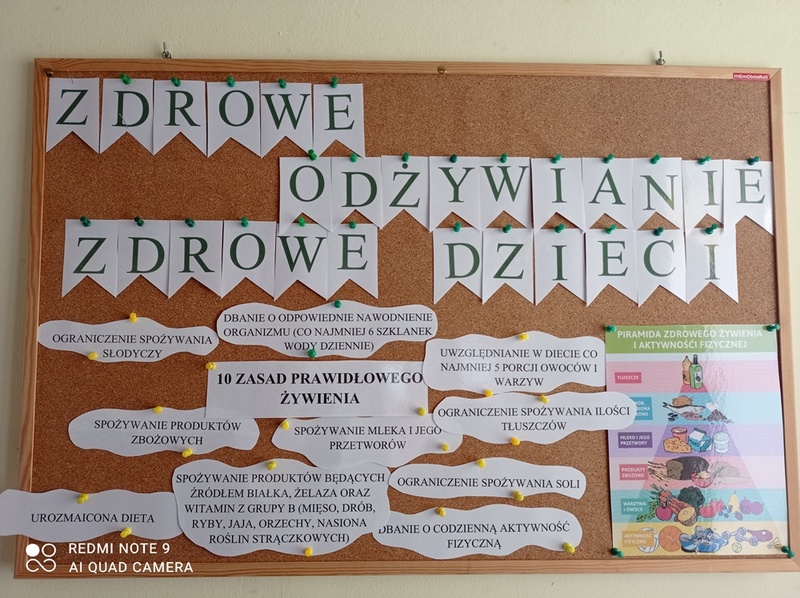 ZDROWE
ODŻYWIANIE
ZDROWE DZIECI
DBANIE O ODPOWIEDNIE NAWODNIENIE
ORGANIZMU (CO NAJMNIEJ 6 SZKLANEK
WODY DZIENNIE)
OGRANICZENIE SPOŻYWANIA
SŁODYCZY
UWZGLĘDNIANIE W DIECIE CO
NAJMNIEJ 5 PORCJI OWOCÓW I
WARZYW
10 ZASAD PRAWIDŁOWEGO
ŻYWIENIA
OGRANICZENIE SPOŻYWANIA ILOŚCI
TŁUSZCZÓW
SPOŻYWANIE PRODUKTÓW
ZBOŻOWYCH
SPOŻYWANIE MLEKA I JEGO
PRZETWORÓW
SPOŻYWANIE PRODUKTÓW BĘDĄCYCH
ŹRÓDŁEM BIAŁKA, ŻELAZA ORAZ
WITAMIN Z GRUPY B (MIĘSO, DRÓB,
RYBY, JAJA, ORZECHY, NASIONA
ROŚLIN STRĄCZKOWYCH)
OGRANICZENIE SPOŻYWANIA SOLI
UROZMAICONA DIETA
DBANIE O CODZIENNĄ AKTYWNOŚĆ
FIZYCZNĄ
PIRAMIDA ZDROWEGO ŻYWIENIA
I AKTYWNOŚCI FIZYCZNEJ
TŁUSZCZE
MLEKO I JEGO
PRZETWORY
PRODUKTY
ZBOŻOWE
WARZYWA
I OWOCE
AKTYWNOŚĆ
FIZYCZNA
REDMI NOTE 9
AI QUAD CAMERA